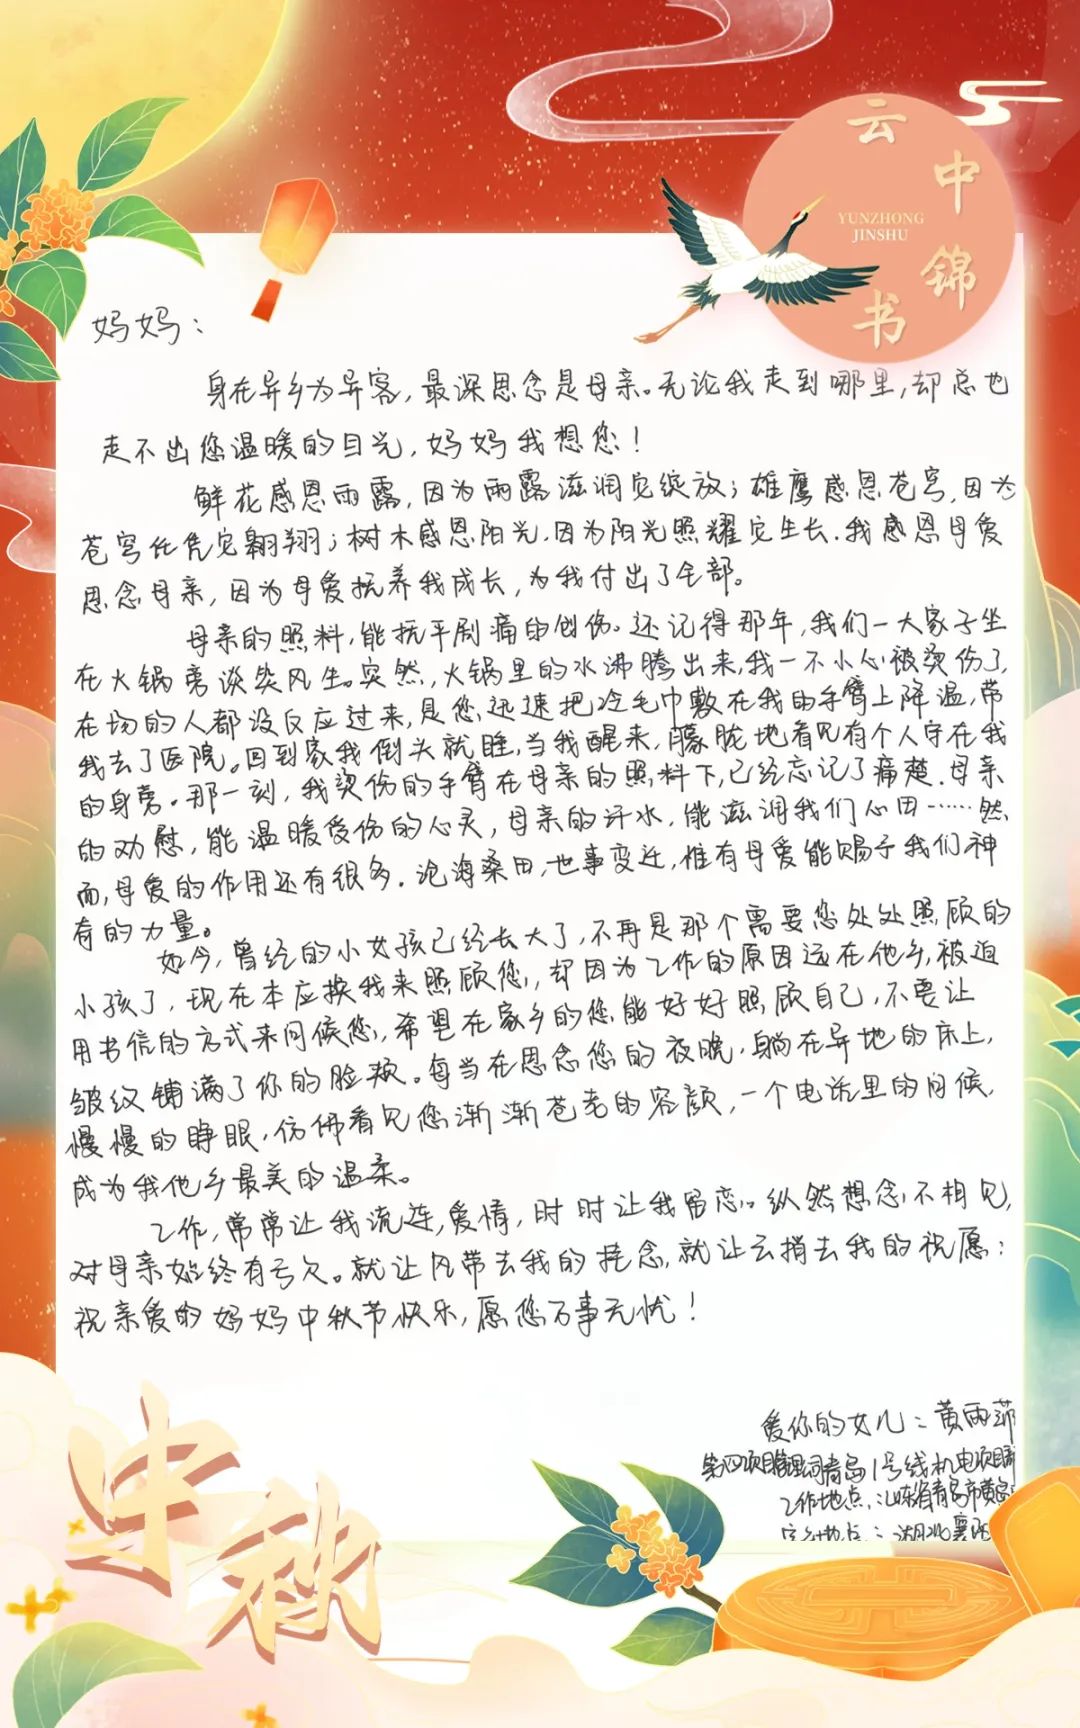 云中锦书
YUNZHONG
JINSHU
妈妈：
身在异乡为异客，最深思念是母亲。无论我走到哪里，却总也
走不出您温暖的目光，妈妈我想您！
鲜花感恩雨露，因为雨露滋润它绽放；雄鹰感恩苍穹，因为
苍穹任凭它翱翔；树木感恩阳光，因为阳光照耀它生长.我感恩母爱
思念母亲，因为母爱抚养我成长，为我付出了全部。
母亲的照料，能抚平剧痛的创伤。还记得那年，我们一大家子坐
在火锅旁谈笑风生。突然，火锅里的水沸腾出来，我一不小心被烫伤了，
在场的人都没反应过来，是您迅速把冷毛巾敷在我的手臂上降温，带
我去了医院。回到家我倒头就睡，当我醒来，朦胧地看见有个人守在我
的身旁。那一刻，我烫伤的手臂在母亲的照料下，已经忘记了痛楚.母亲
的劝慰，能温暖受伤的心灵，母亲的汗水，能滋润我们心田……然
而，母爱的作用还有很多.沧海桑田，世事变迁，惟有母爱能赐予我们神
奇的力量。
如今，曾经的小女孩已经长大了，不再是那个需要您处处照顾的
小孩了，现在本应换我来照顾您，却因为工作的原因远在他乡，被迫
用书信的方式来问候您，希望在家乡的您能好好照顾自己，不要让
皱纹铺满了你的脸颊。每当在思念您的夜晚，躺在异地的床上，
慢慢的睁眼，仿佛看见您渐渐苍老的容颜，一个电话里的问候，
成为我他乡最美的温柔。
工作，常常让我流连，爱情，时时让我留恋。纵然想念不相见，
对母亲始终有亏欠。就让风带去我的挂念，就让云捎去我的祝愿：
祝亲爱的妈妈中秋节快乐，愿您万事无忧！
爱你的女儿：黄雨菲
第四项目管理公司青岛1号线机电项目部
工作地点：山东省青岛市黄岛
家乡地点：湖北襄阳
中秋